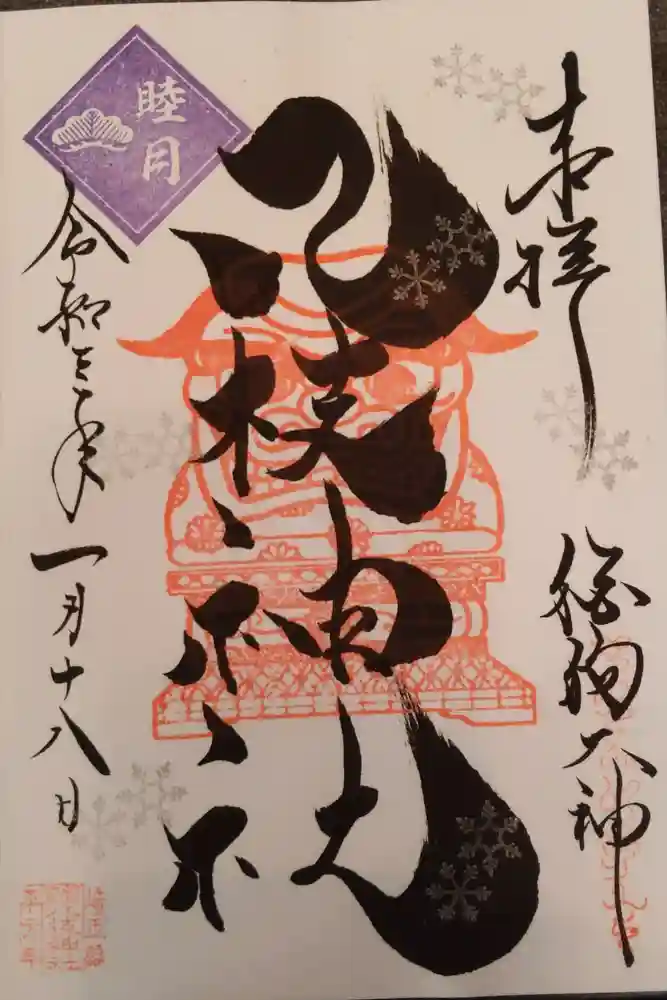 奉拝
狛狗大神
八枝神社
睦月
令和三年
一月十八日